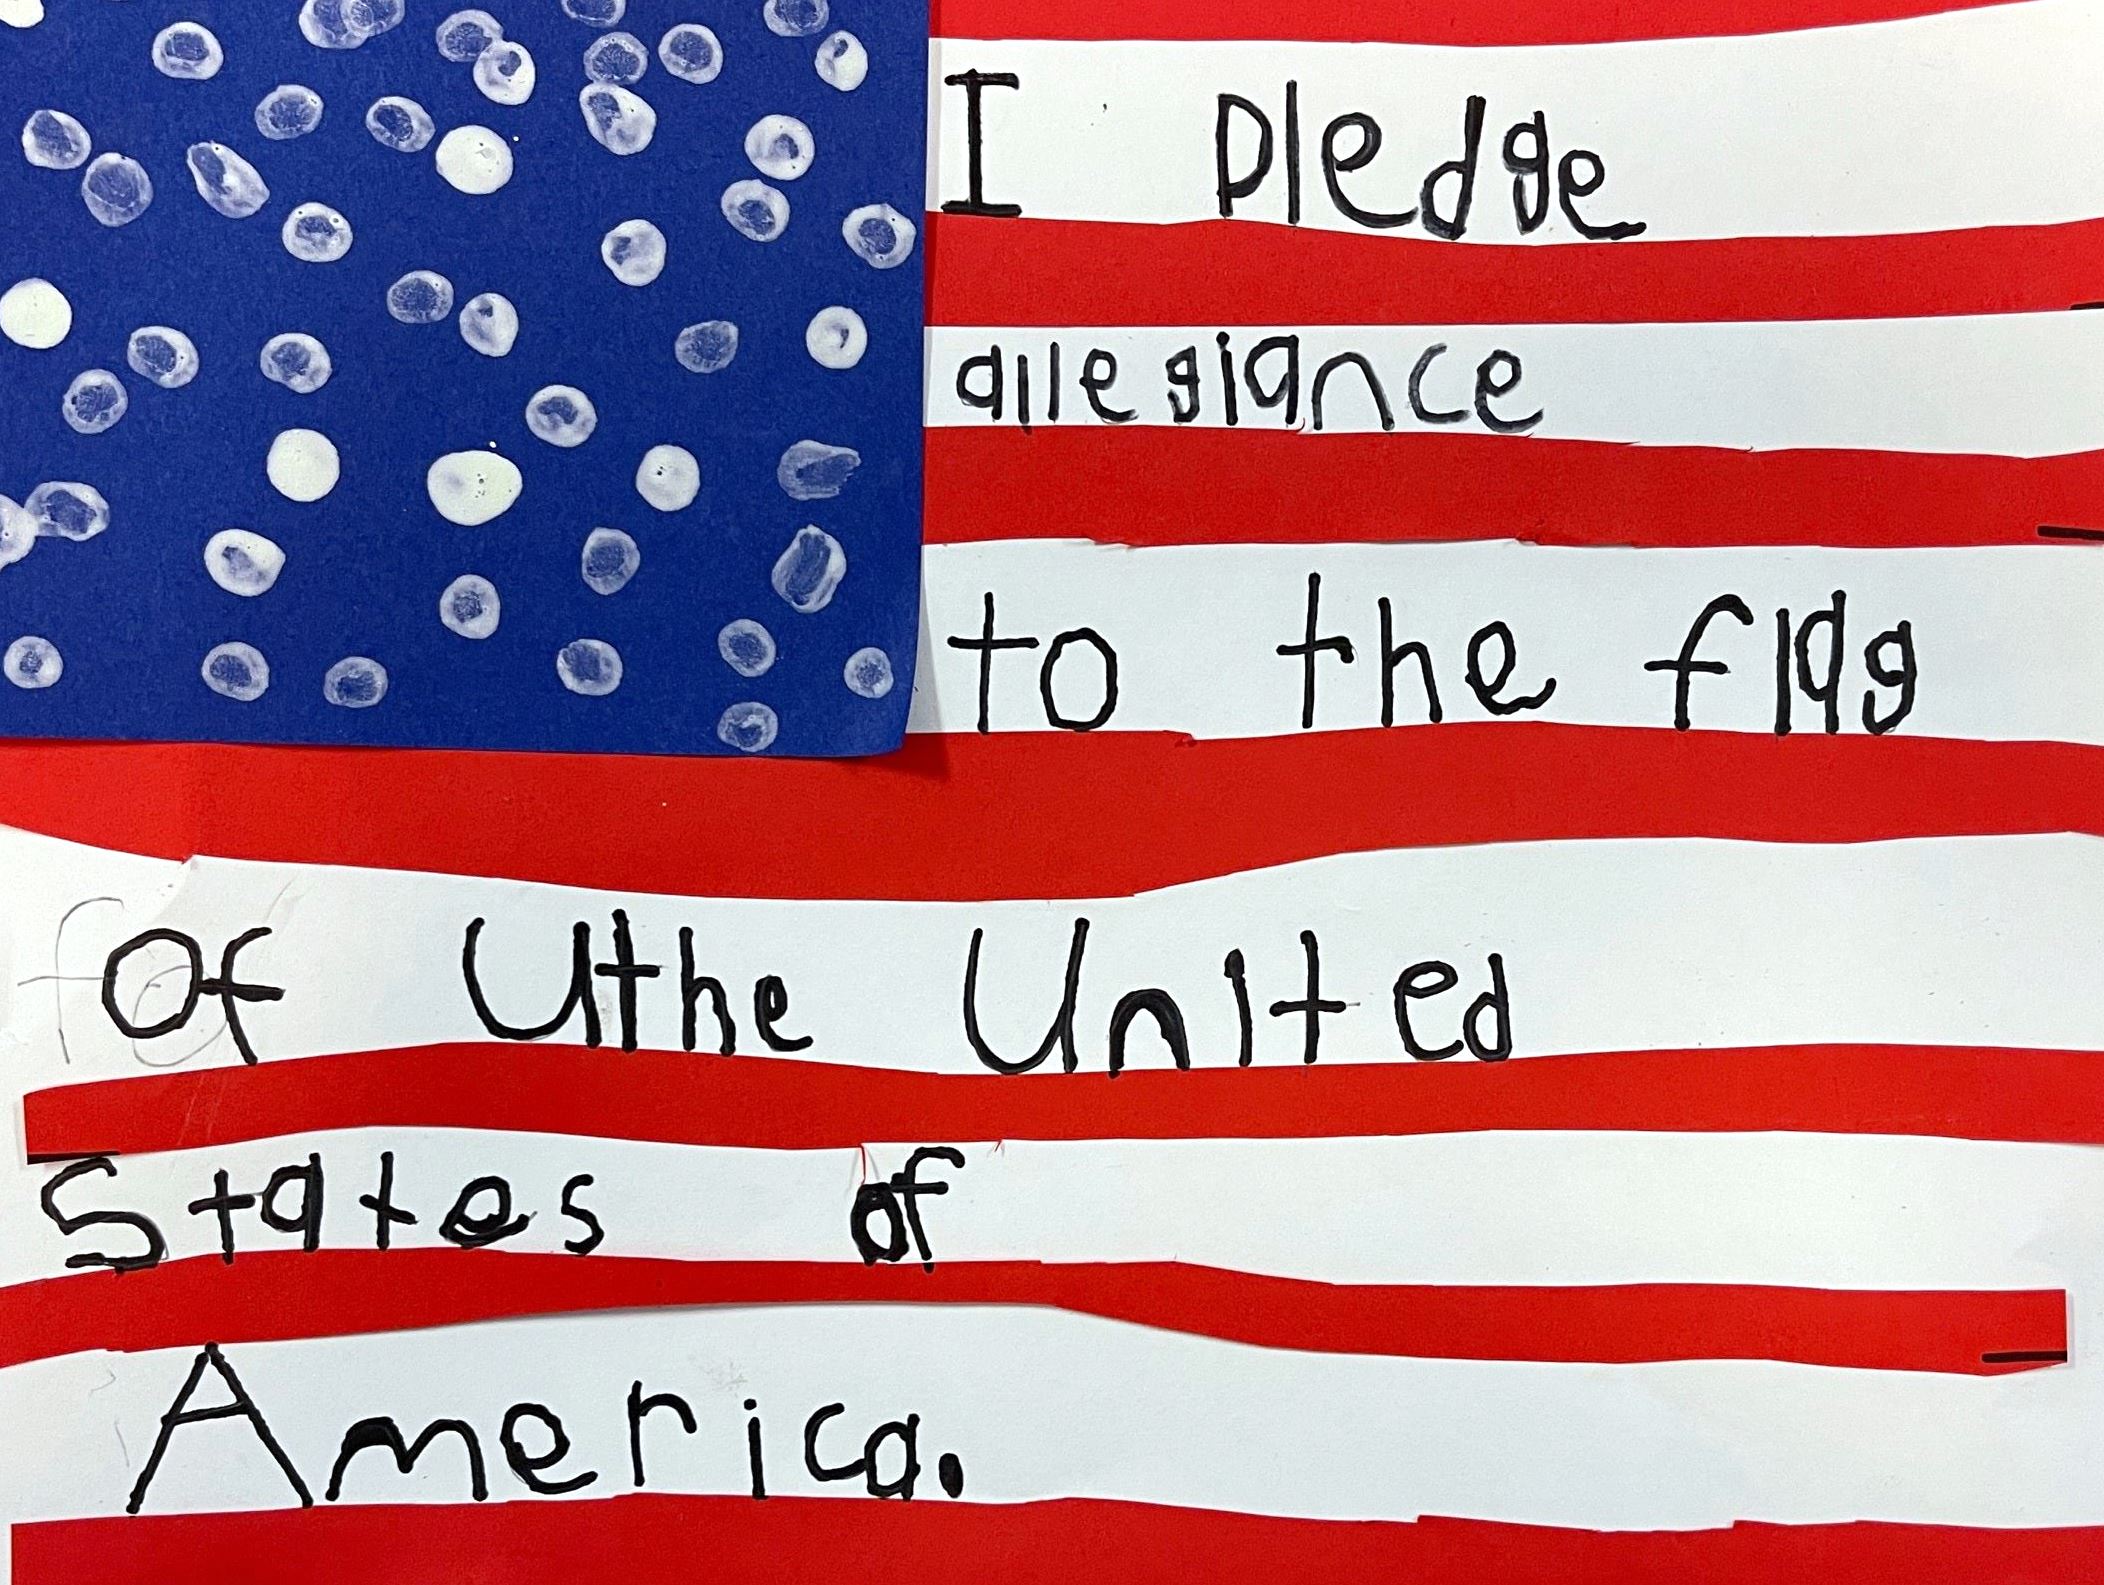 I pledge
allegiance
to the flag
of Uthe United
States of
America.